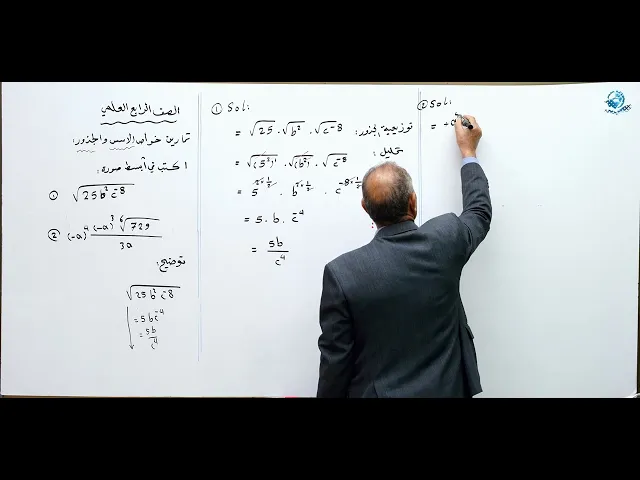 الصف الرابع العلمي
تمارين خواص الاسس والجذور:
اكتب في أبسط صورة:
① √(25b²c⁻⁸)
② (-a)⁴ (-a)³ ⁶√729 / 3a
توضيح:
√(25b²c⁻⁸)
= 5bc⁻⁴
= 5b/c⁴
① Sol:
= √25 . √b² . √c⁻⁸ توزيعية الجذور:
= √(5²) . √(b²) . √c⁻⁸ تحليل:
= 5^(2×1/2) . b^(2×1/2) . c^(-8×1/2)
= 5 . b . c⁻⁴
= 5b/c⁴
② Sol:
= +a